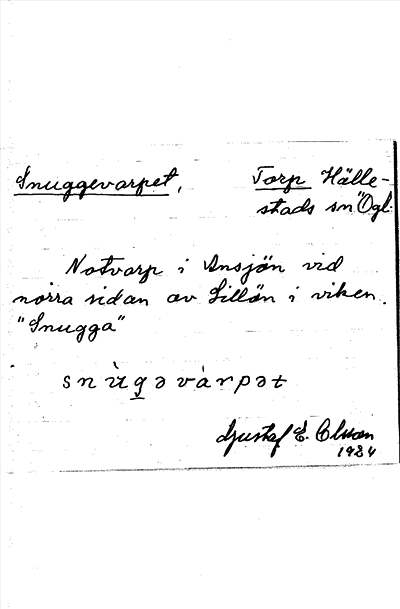 Snuggevarpet, Torp Hälle-
stads sn Ögl.
Notvarp i Ansjön vid
norra sidan av Lillön i viken.
"Snugga"
snùgəvàrpət
Gustaf E. Olsson
1924